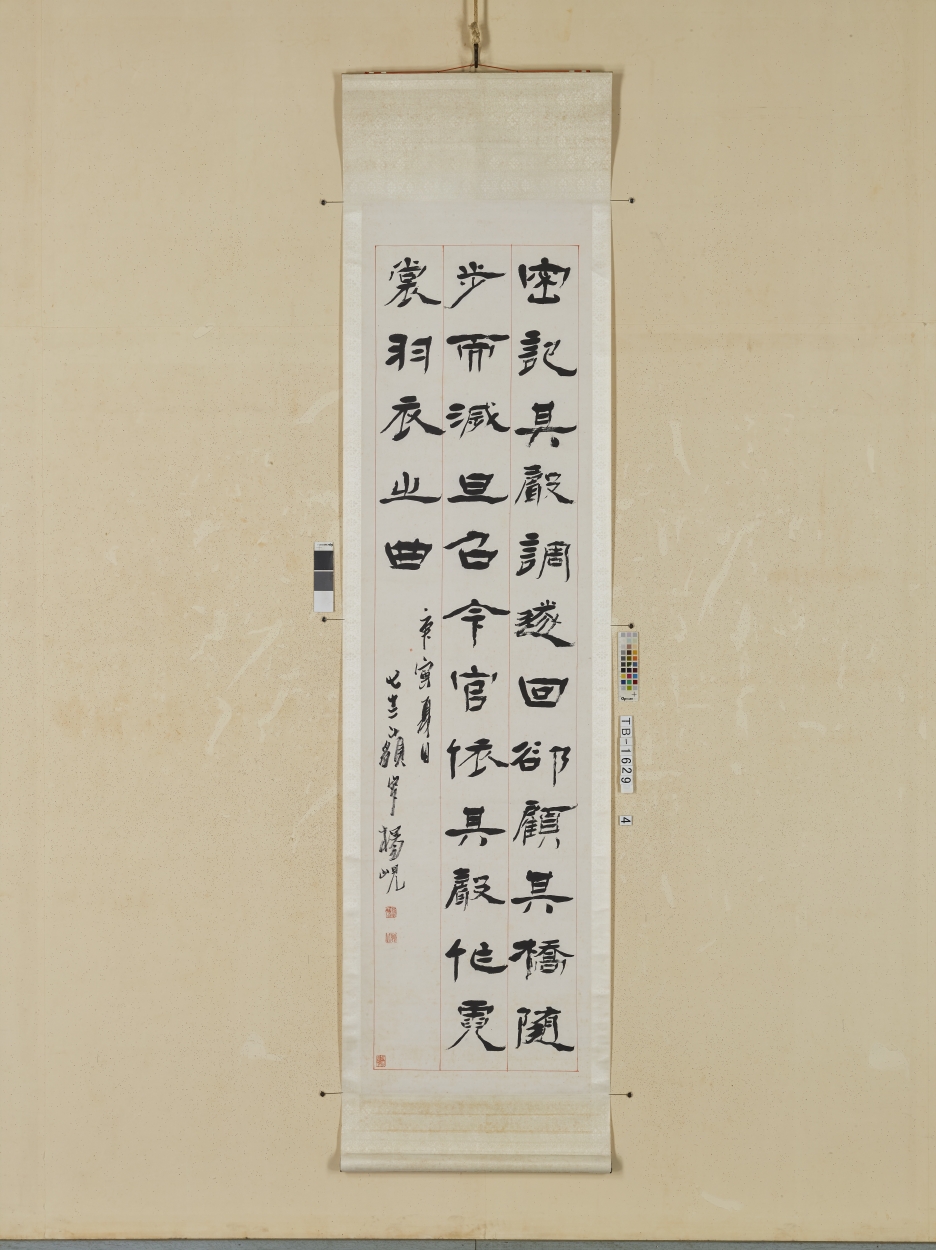 密記其聲調遂回卻顧其橋隨
步而減旦召令官依其聲作霓
裳羽衣之曲
庚寅夏日
七十二叟藐翁楊峴
TB-1629
4